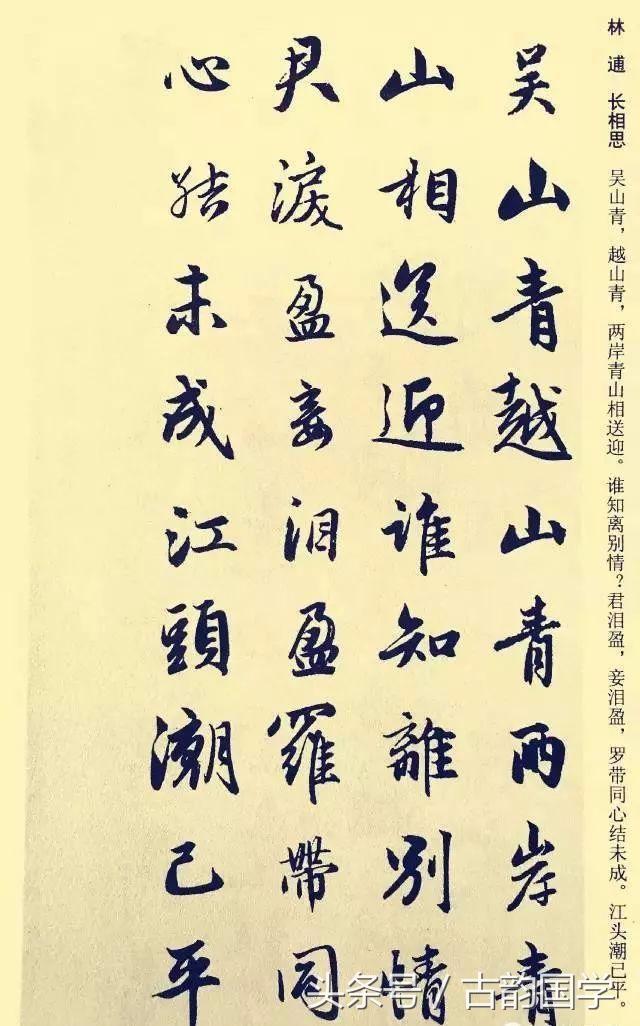 林 逋 长相思 吴山青，越山青，两岸青山相送迎。谁知离别情？君泪盈，妾泪盈，罗带同心结未成。江头潮已平。
吴山青越山青两岸青
山相送迎谁知離别情
君淚盈妾泪盈羅帶同
心结未成江頭潮已平
头条号/古韵国学